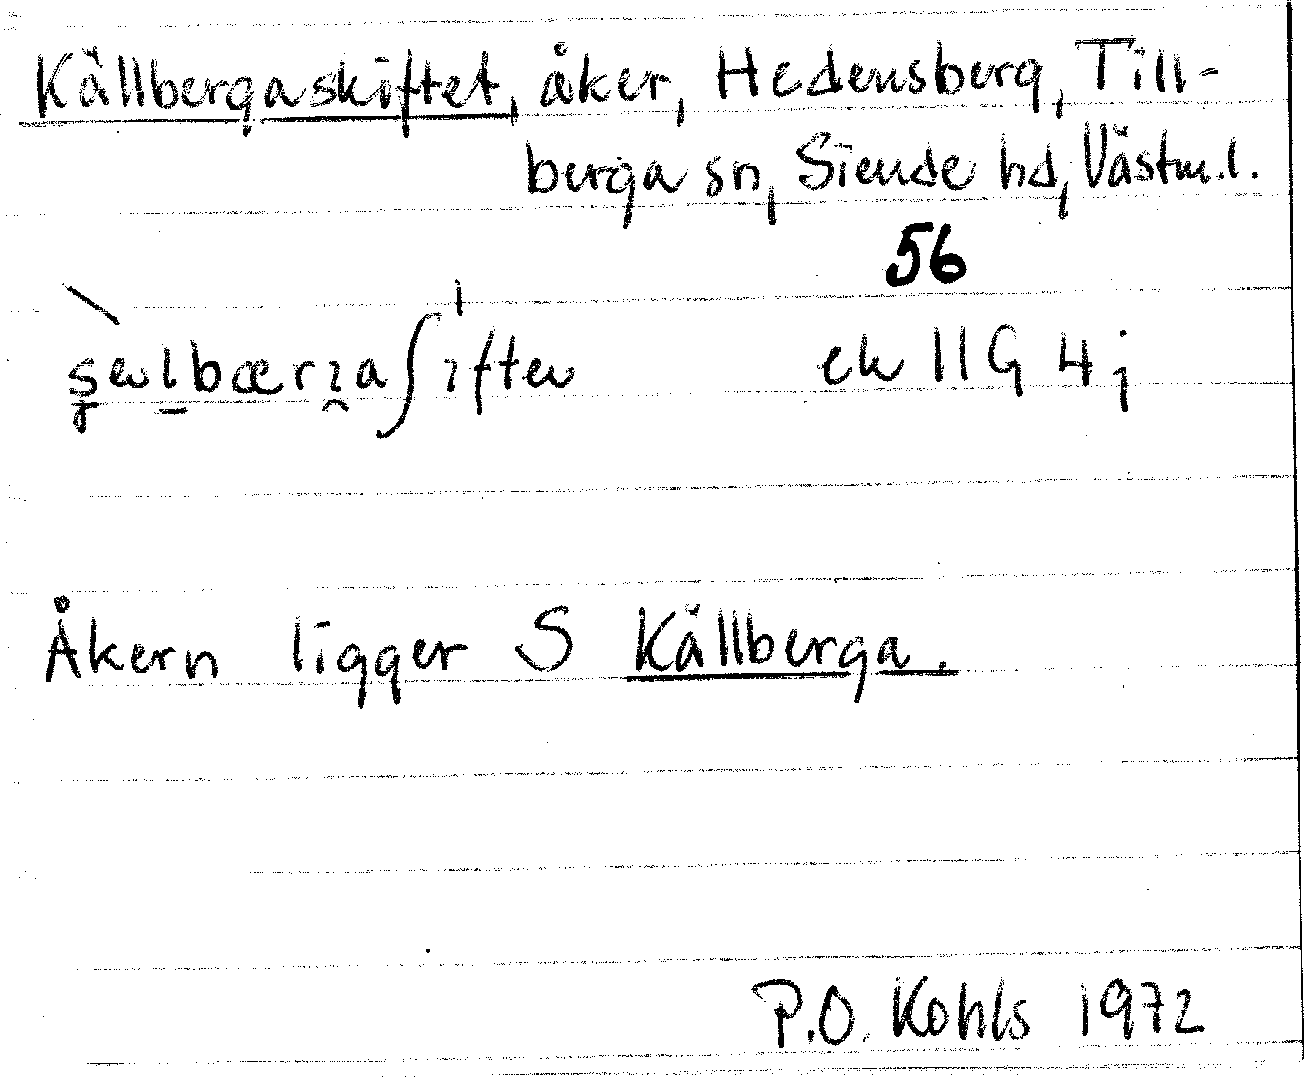 Källbergaskiftet, åker, Hedensberg, Till-
berga sn, Siende hd, Västm.l.
56
ek 11G 4j
Åkern ligger S Källberga.
P.O. Kohls 1972